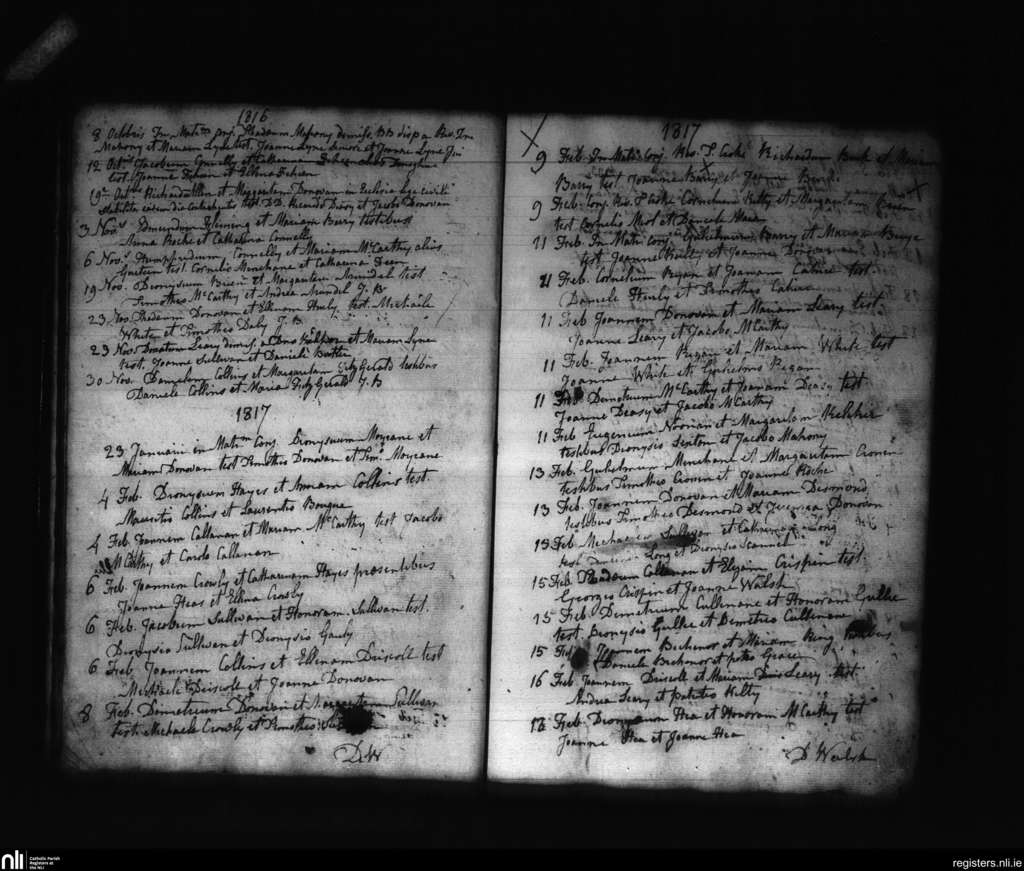 1816
8 Octobris In Matm conj. Thadeum Mahony dimiss. BB dispa Rev. Im
Mahony et Mariam Lyne test. Joanne Lyne seniori et Joanne Lyne Jun
12 Octris Jacobum et Catherinam
test. Joanne et Ellena
19 Octris Richardum et Margaritam Donovan in Ecclesia
test. DD. et Jacobo Donovan
3 Novr Edmundum Fleming et Mariam Barry testibus
Anna Roche et Catharina Connelly
6 Novr Humphridum Connelly et Mariam McCarthy alias
test Cornelio Minehane et Catharina
19 Nov. Dionysium et Margaritam Arundel test
Timotheo McCarthy et Andrea Arundel J. B
23 Nov. Thadeum Donovan et Ellenam Hurly test. Michaele
White et Timotheo Daly J. B
23 Novr Donatum Leary dimiss. a et Mariam Lyne
test. Joanne Sullivan et Daniele Butler
30 Nov. Danielem Collins et Margaritam FitzGerald testibus
Daniele Collins et Maria FitzGerald J. B
1817
23 Januarii in Matm Conj. Dionysium Moyeane et
Mariam Donovan test Timotheo Donovan et Timo. Moyeane
4 Feb. Dionysium Hayes et Annam Collins test.
Mauritio Collins et Laurentio Bongue
4 Feb. Joannem Callanan et Mariam McCarthy test Jacobo
McCarthy et Carolo Callanan
6 Feb. Joannem Crowly et Catharinam Hayes præsentibus
Joanne Heas et Ellena Crowly
6 Feb. Jacobum Sullivan et Honoram Sullivan test.
Dionysio Sullivan et Dionysio Gauly
6 Feb. Joannem Collins et Ellenam Driscoll test
Michaele Driscoll et Joanne Donovan
8 Feb. Demetrium Donovan et Margaritam Sullivan
test. Michaele Crowly et Timotheo
D. W
1817
9 Feb. In Matr. Conj. Rev. P Cooke Richardum Bush et Mariam
Barry test. Joanne Barry et Joanne
9 Feb. Conj. Rev. P Cooke Cornelium Kelty et Margaritam
test Cornelio et Daniele
11 Feb. In Matr. conj. Gulielmum Barry et Mariam
test. Joanne et Joanne Donovan
11 Feb. Cornelium Regan et Joanam Cahill test.
Daniele Hurly et Timotheo
11 Feb Joannem Donovan et Mariam Leary test.
Joanne Leary et Jacobo McCarthy
11 Feb. Joannem Regan et Mariam White test
Joanne White et Gulielmo Regan
11 Feb. Demetrium McCarthy et Joanam Deasy test
Joanne Deasy et Jacobo McCarthy
11 Feb Eugenium Noonan et Margaritam Kelcher
testibus Dionysio Sexton et Jacobo Mahony
13 Feb. Gulielmum Minehane et Margaritam Cronin
testibus Timotheo Cronin et Joanne Roche
13 Feb. Joannem Donovan et Mariam Desmond
testibus Timotheo Desmond et Donovan
15 Feb Michaelem Sullivan et Catharinam Long
test Long et Dionysio Scannel
15 Feb. Thadeum Callanan et Elizam Crispin test.
Georgeo Crispin et Joanne Walsh
15 Feb Demetrium Cullinane et Honoram Gullie
test. Dionysio Gullie et Demetrio Cullinan
15 Feb. Joannem Bickenor et Miriam Ring testibus
Daniele Bickenor et
16 Feb Joannem Driscoll et Mariam Leary test.
Andrea Leary et patritio Kelty
17 Feb. Dionysium Hea et Honoram McCarthy test
Joanne Hea et Joanne Hea
D Walsh
nli
Catholic Parish
Registers at
the NLI
registers.nli.ie